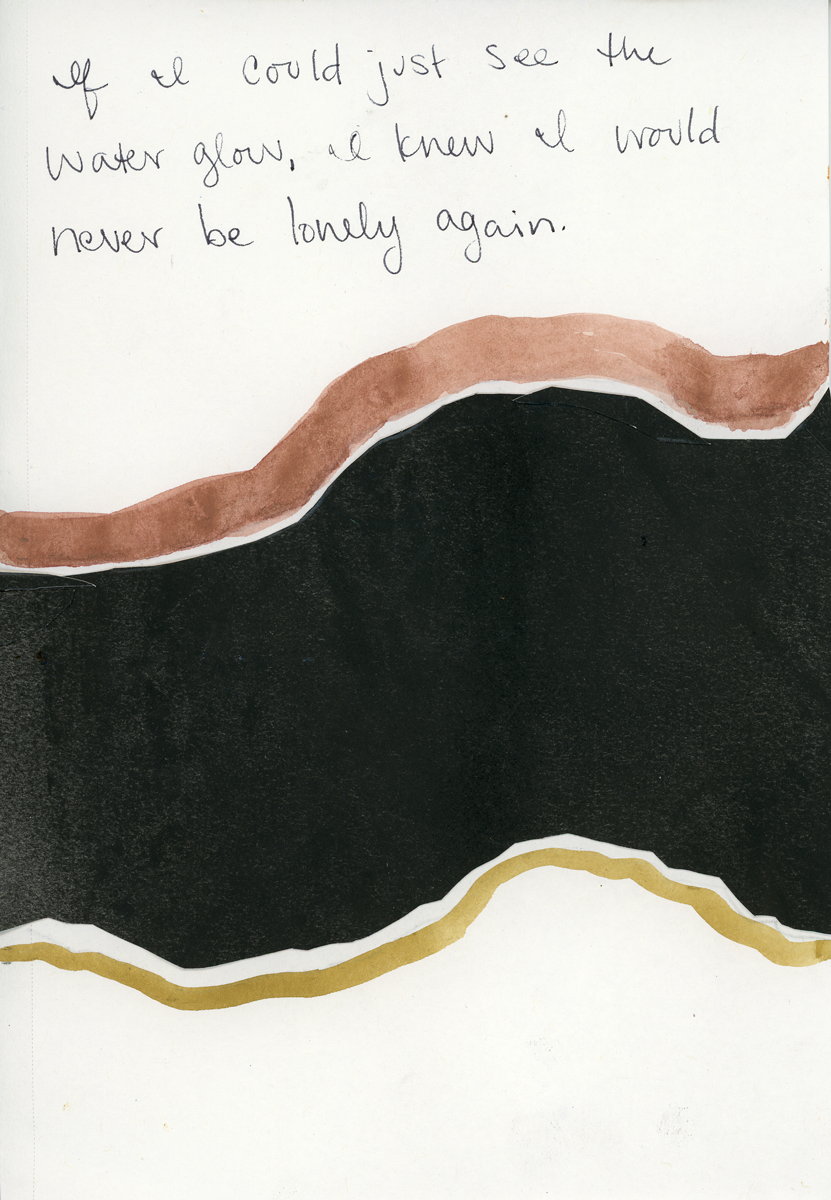 If I could just see the
water glow, I knew I would
never be lonely again.